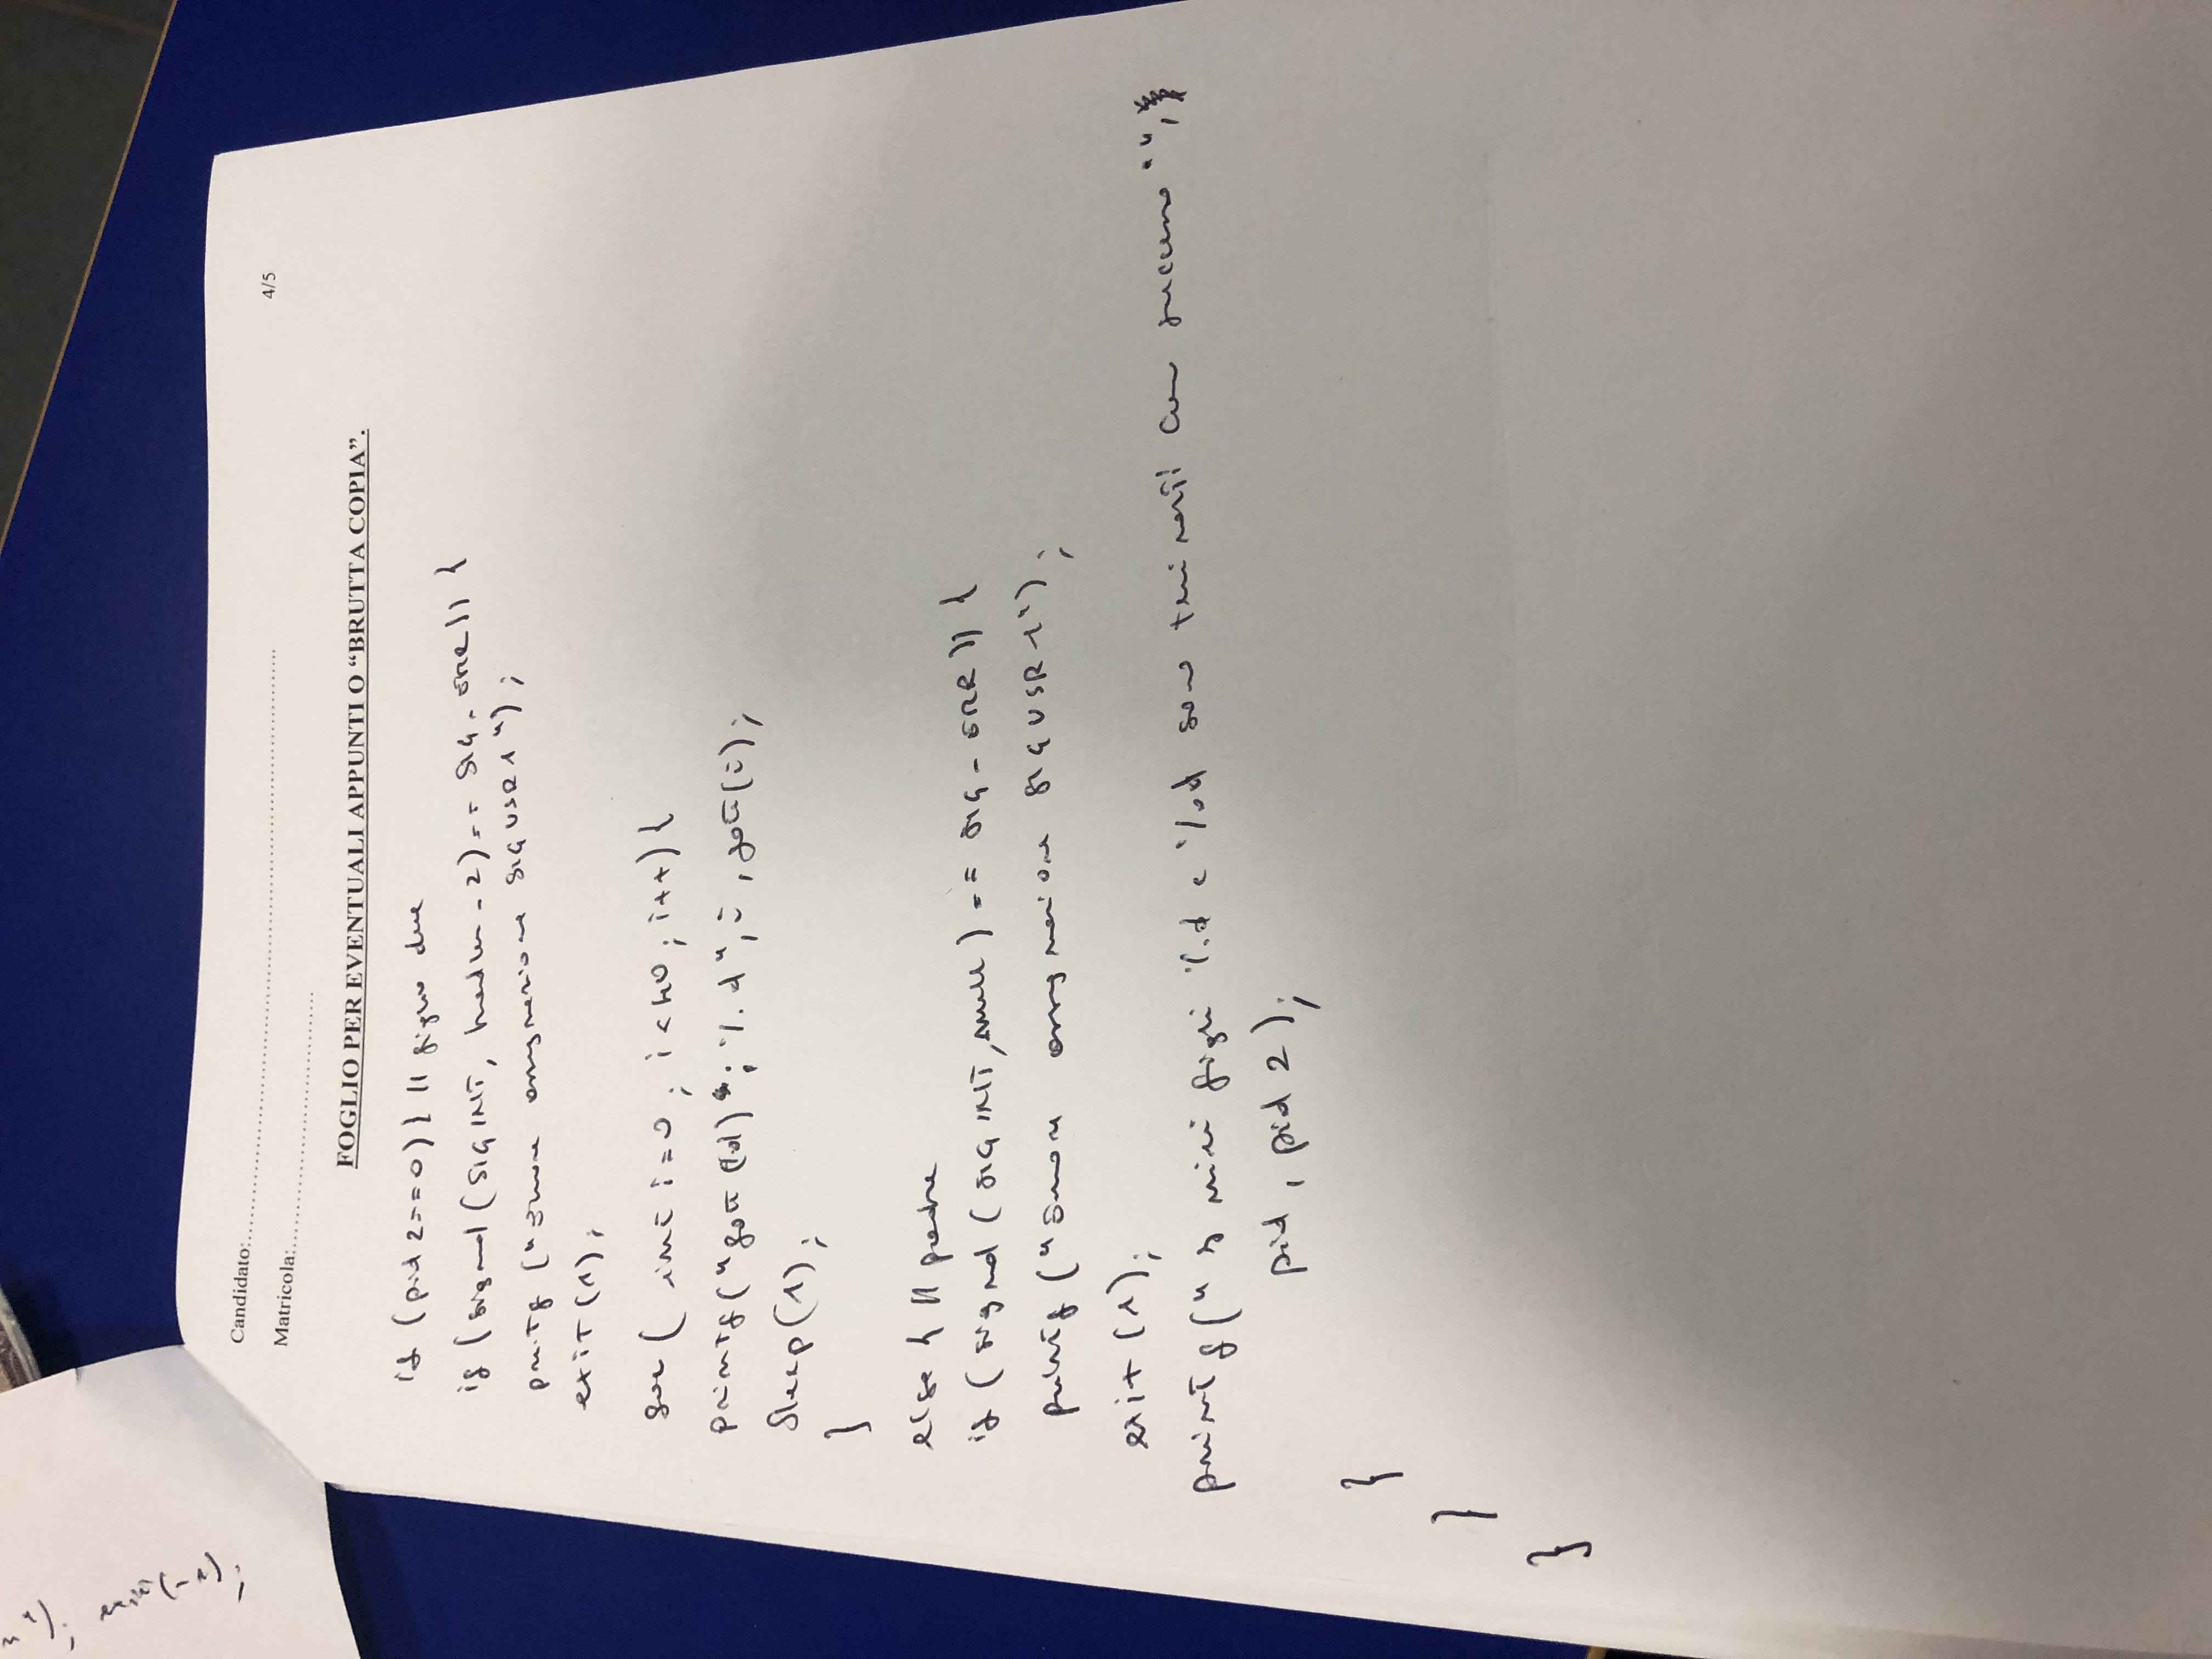 3 1); exit(-1);
Candidato:
Matricola:
4/5
FOGLIO PER EVENTUALI APPUNTI O “BRUTTA COPIA”.
if (pid 2==0) { // figlio due
if (signal (SIGINT, handler_2) == SIG_ERR)) {
printf ("Errore assegnazione SIGUSR1");
exit(1);
for ( int i=0; i<40; i++) {
printf("fatt (%d) ; %d", i, fatt(i);
Sleep(1);
}
else { // padre
if (signal (SIGINT, null) == SIG_ERR)) {
printf ("Errore assegnazione SIGUSR1");
exit (1);
printf (" I miei figli %d e %d sono terminati con successo "",
pid, pid 2);
}
}
}